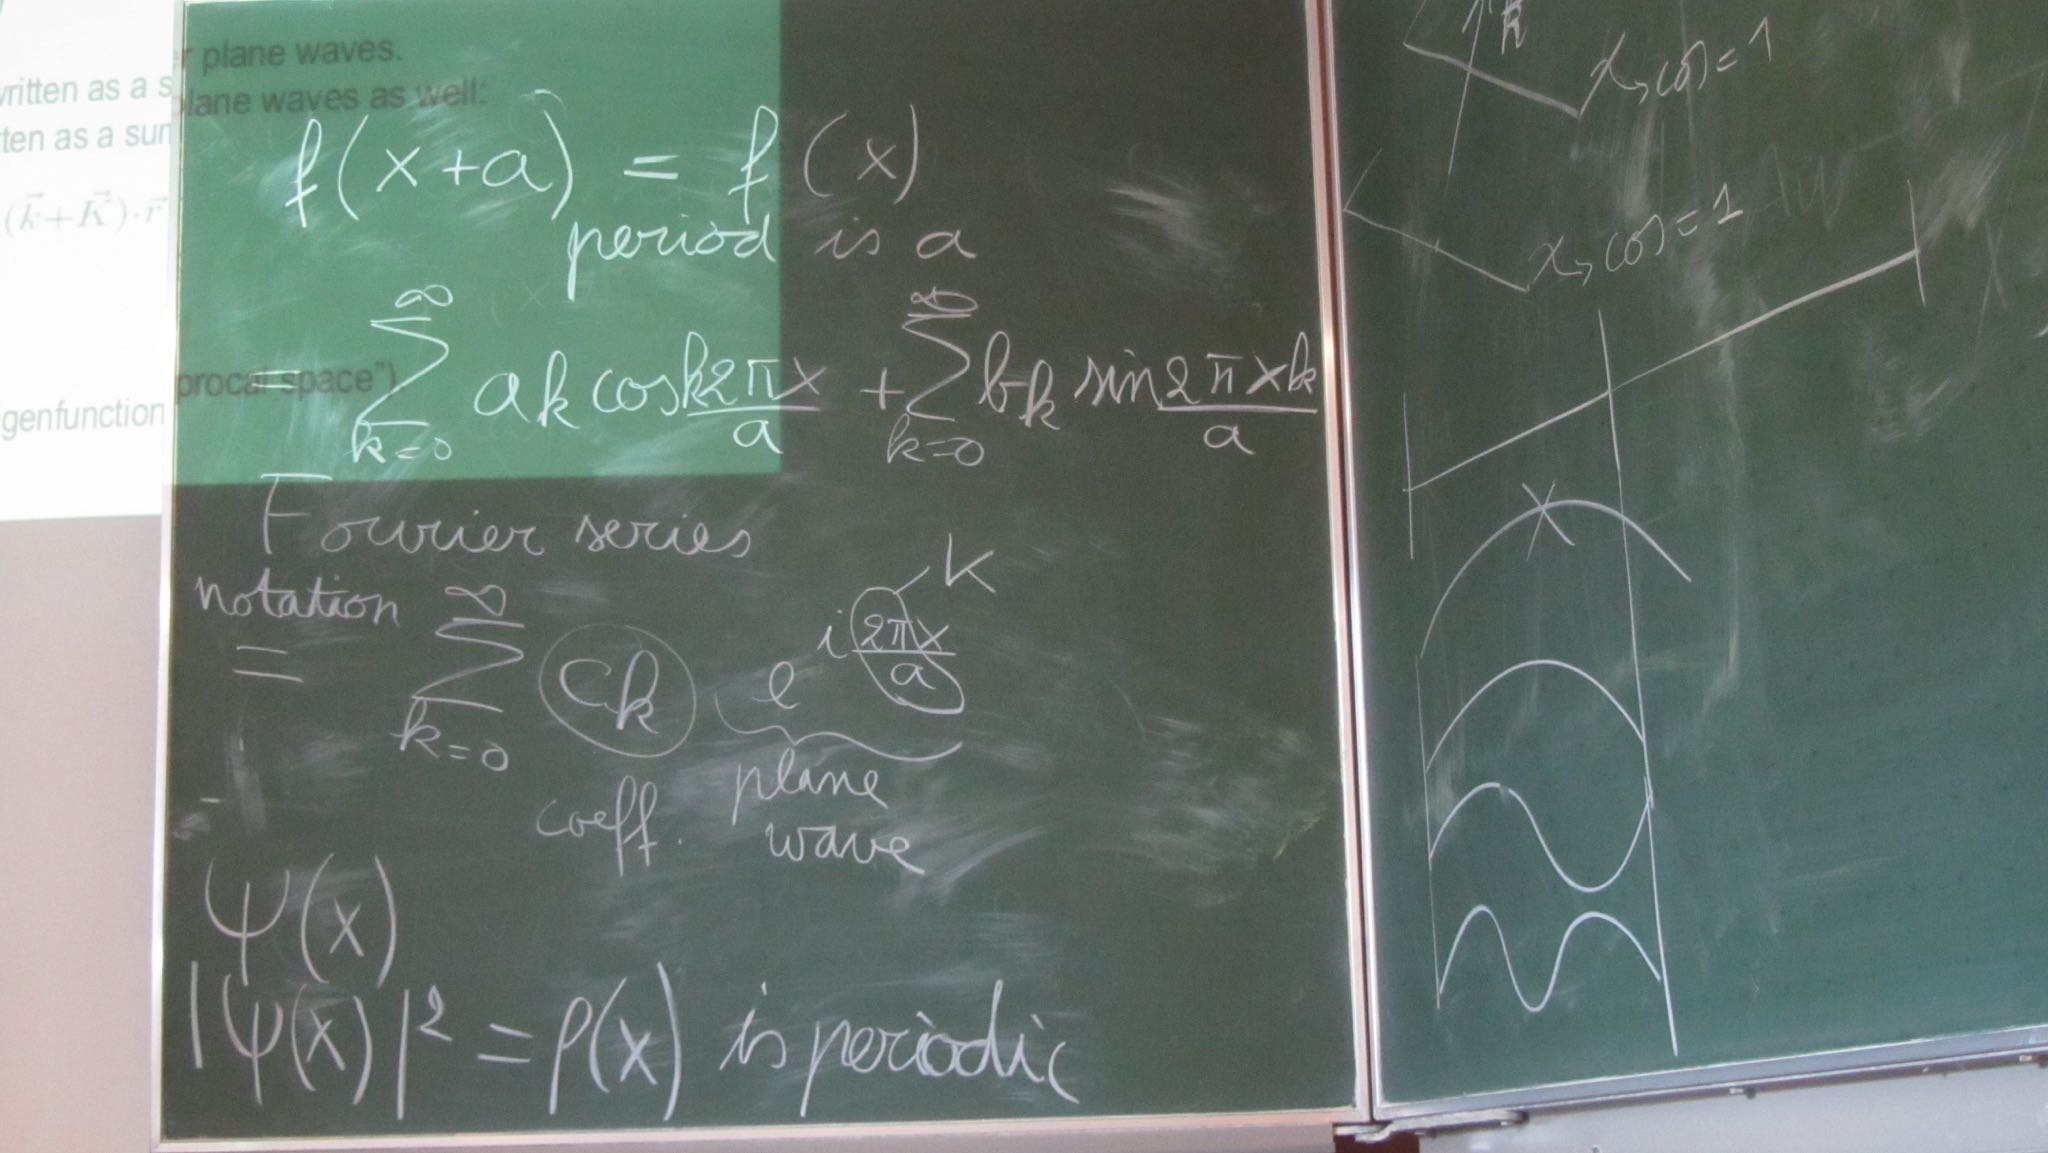 r plane waves.
ritten as a s
plane waves as well:
tten as a sum
(k⃗+K⃗)·r⃗
procal space")
genfunction
f(x+a) = f(x)
period is a
= ∑_{k=0}^{∞} ak cos k2πx/a + ∑_{k=0}^{∞} bk sin 2πxk/a
Fourier series
notation
= ∑_{k=0}^{∞} ck e^{i 2πx/a} K
coeff. plane
wave
ψ(x)
|ψ(x)|² = ρ(x) is periodic
x, cos=1
x, cos=1